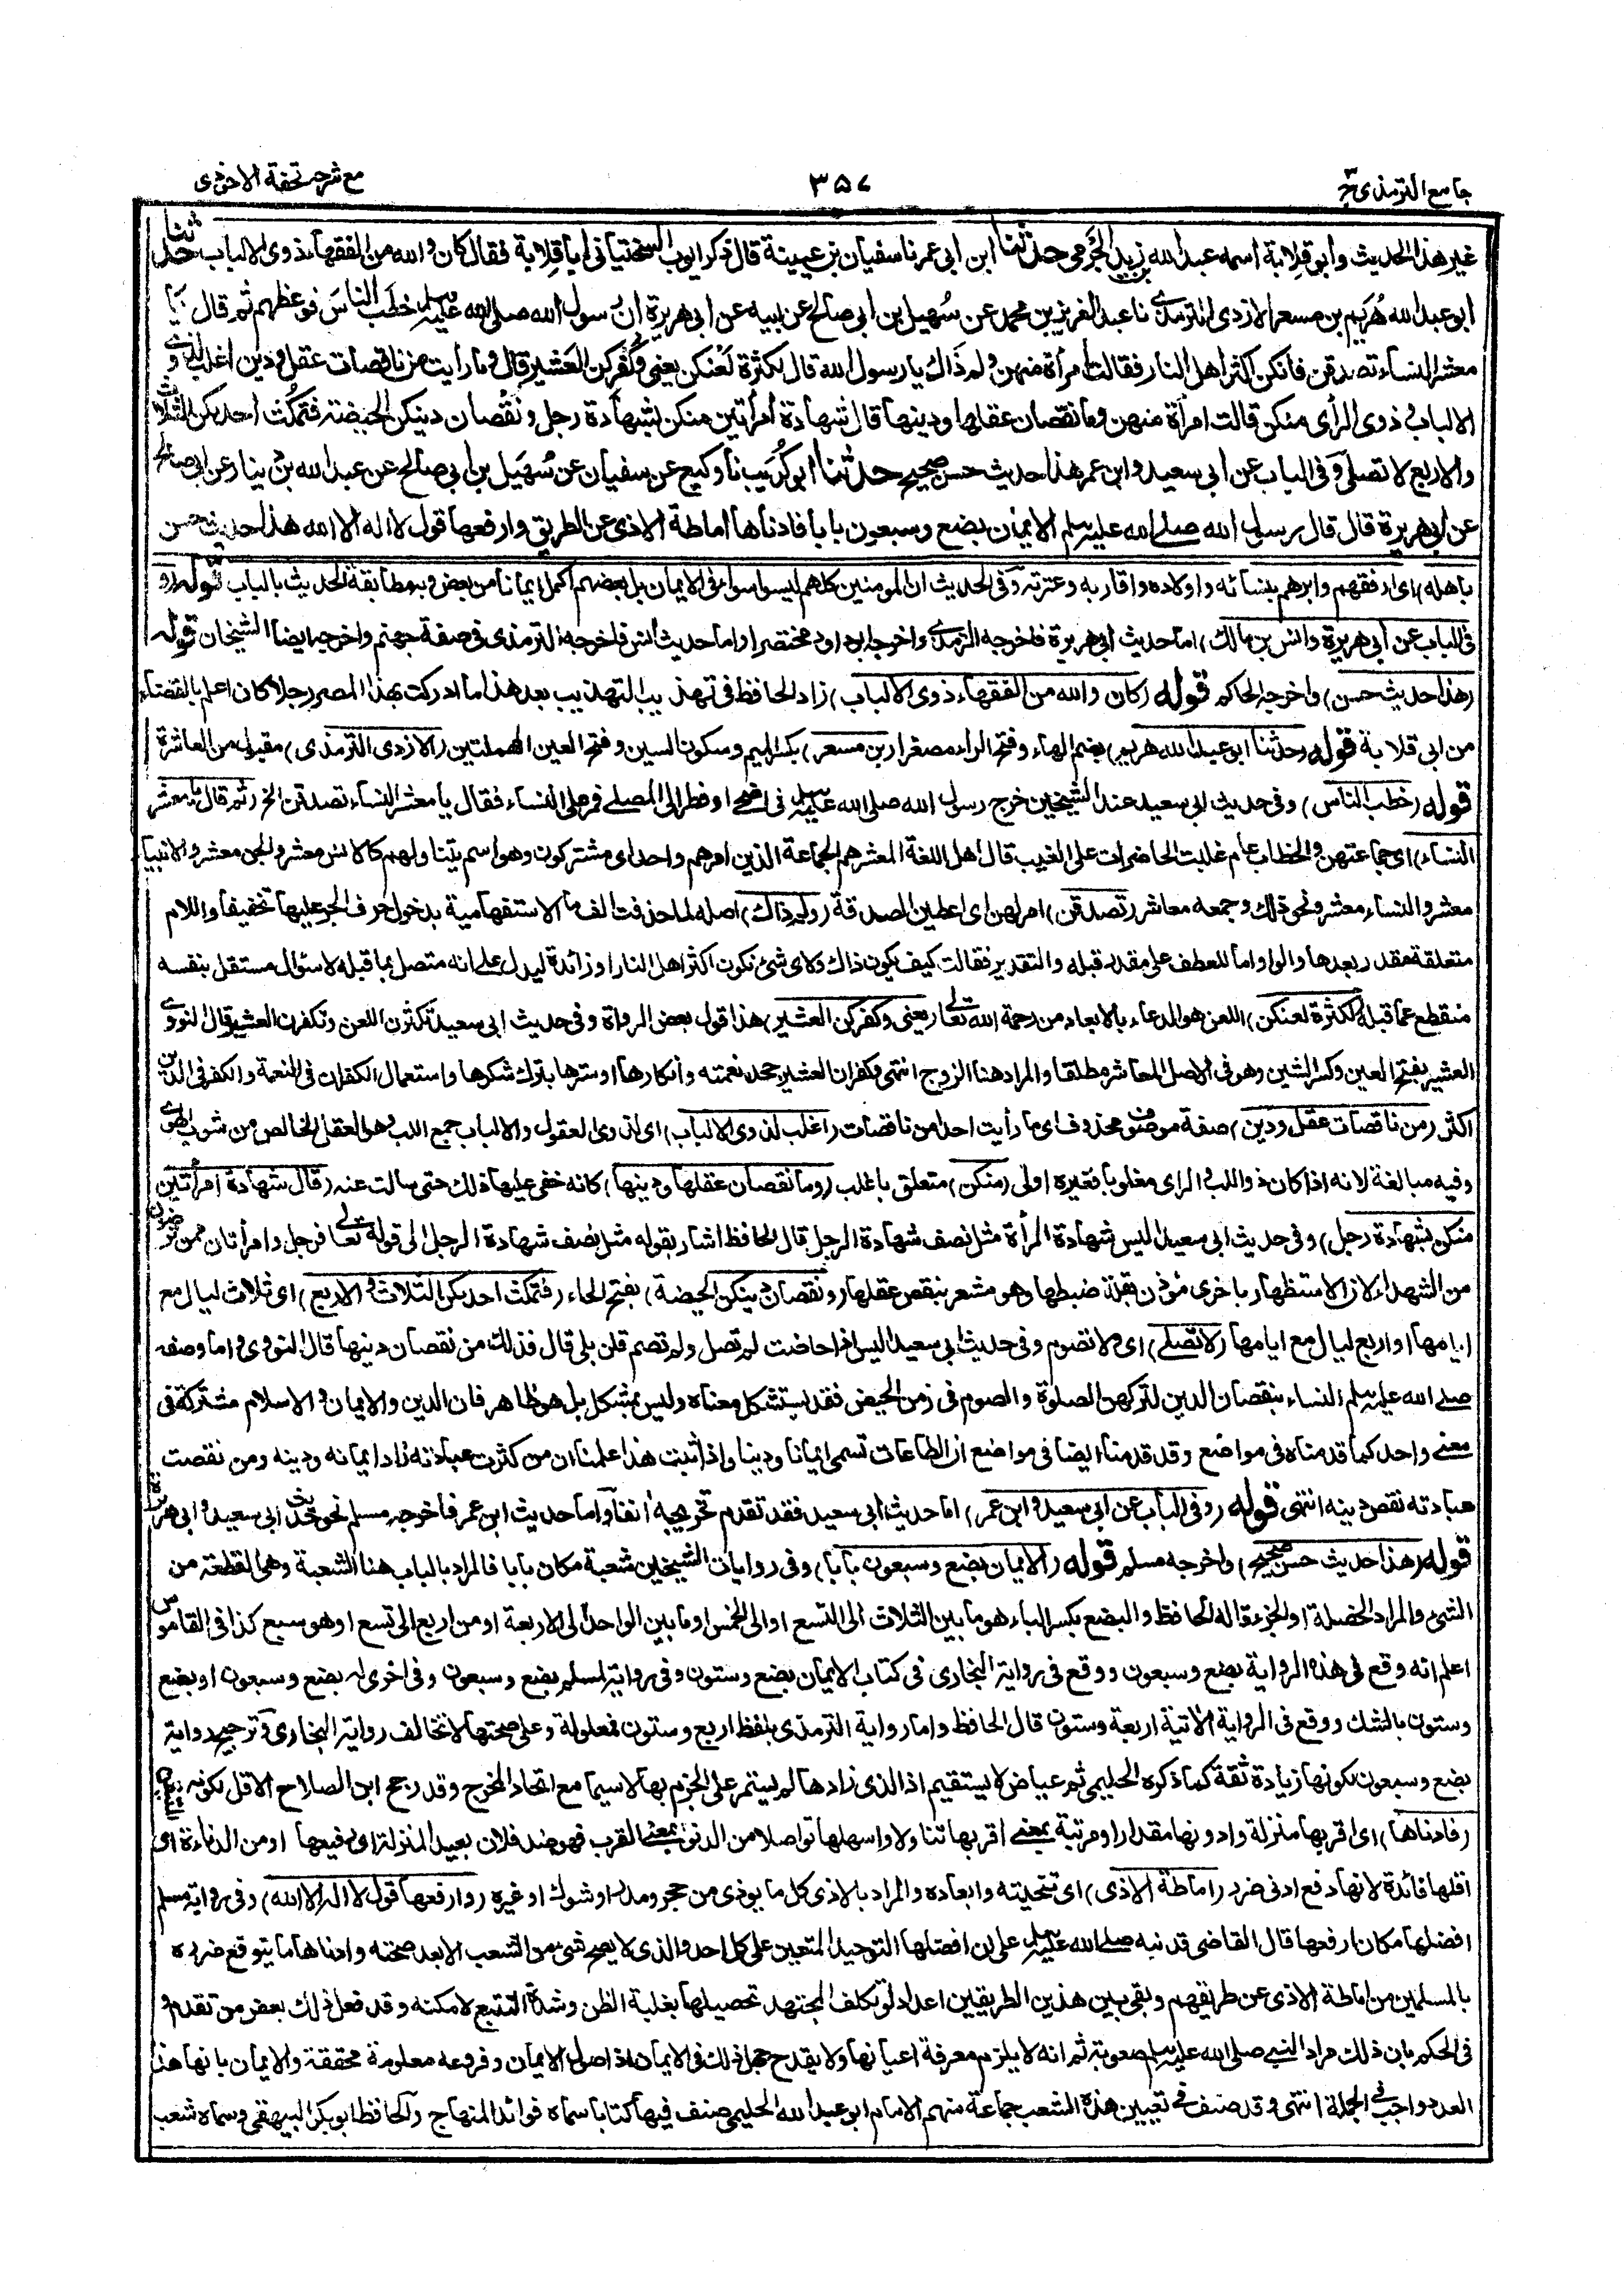 جامع الترمذی ج۳
۳۵۷
مع شرحہ تحفة الاحوذی
غیر هذا الحدیث وابو قلابة اسمه عبد الله بن زید الجَرمی حدثنا ابن ابی عمر نا سفیان بن عیینة قال ذکر ایوب السختیانی ابا قِلابة فقال کان والله من الفقهاء ذوی الالباب حدثنا
ابو عبد الله هُرَیم بن مسعر الازدی الترمذی نا عبد العزیز بن محمد عن سُهیل بن ابی صالح عن ابیه عن ابی هریرة ان رسول الله صلی الله علیه وسلم خطب الناسَ فوعظهم ثم قال یا
معشر النساء تصدقن فانکن اکثر اهل النار فقالت امرأة منهن ولم ذَاک یا رسول الله قال لکثرة لَعْنکن یعنی وکُفْرکن العَشیر قال وما رأیت من ناقصات عقل ودین اغلب لذوی
الالباب وذوی الرأی منکن قالت امرأة منهن وما نقصان عقلها ودینها قال شهادة امرأتین منکن بشهادة رجل ونُقْصان دینکن الحیضة فتمکُث احدیکن الثلاث
والاربع لا تصلی وفی الباب عن ابی سعید وابن عمر هذا حدیث حسن صحیح حدثنا ابو کُرَیب نا وکیع عن سفیان عن سُهَیل بن ابی صالح عن عبد الله بن دینار عن ابی صالح
عن ابی هریرة قال قال رسول الله صلی الله علیه وسلم الایمان بضع وسبعون بابا فادناها اماطة الاذی عن الطریق وارفعها قول لا اله الا الله هذا حدیث حسن
باهله) ای ارفقهم وابرهم بنسائه واولاده واقاربه وعترته وفی الحدیث ان المومنین کلهم لیسوا سواء فی الایمان بل بعضهم اکمل ایمانا من بعض وبه مطابقة الحدیث بالباب قوله (و
فی الباب عن ابی هریرة وانس بن مالک) اما حدیث ابی هریرة فاخرجه الترمذی واخرجه ابو داود مختصرا واما حدیث انس فاخرجه الترمذی فی صفة جهنم واخرجه ایضا الشیخان قوله
(هذا حدیث حسن) واخرجه الحاکم قوله (کان والله من الفقهاء ذوی الالباب) زاد الحافظ فی تهذیب التهذیب بعد هذا ما ادرکت بهذا المصر رجلا کان اعلم بالقضاء
من ابی قلابة قوله (حدثنا ابو عبد الله هریم) بضم الهاء وفتح الراء مصغرا (بن مسعر) بکسر المیم وسکون السین وفتح العین المهملتین (الازدی الترمذی) مقبول من العاشرة
قوله (خطب الناس) وفی حدیث ابی سعید عند الشیخین خرج رسول الله صلی الله علیه وسلم فی اضحی او فطر الی المصلی فمر علی النساء فقال یا معشر النساء تصدقن الخ (ثم قال یا معشر
النساء) ای جماعتهن والخطاب عام غلبت الحاضرات علی الغیب قال اهل اللغة المعشر هم الجماعة الذین امرهم واحد ای مشترکون وهو اسم یتناولهم کالانس معشر والجن معشر والانبیاء
معشر والنساء معشر ونحو ذلک وجمعه معاشر (تصدقن) امر لهن ای اعطین الصدقة (ولم ذاک) اصله لما حذفت الف ما الاستفهامیة بدخول حرف الجر علیها تخفیفا واللام
متعلقة بمقدر بعدها والواو اما للعطف علی مقدر قبله والتقدیر فقالت کیف یکون ذاک ولای شئ نکون اکثر اهل النار او زائدة لیدل علی انه متصل بما قبله لا سؤال مستقل بنفسه
منقطع عما قبله (لکثرة لعنکن) اللعن هو الدعاء بالابعاد من رحمة الله تعالی (یعنی وکفرکن العشیر) هذا قول بعض الرواة وفی حدیث ابی سعید تکثرن اللعن وتکفرن العشیر قال النووی
العشیر بفتح العین وکسر الشین وهو فی الاصل المعاشر مطلقا والمراد هنا الزوج انتهی وکفران العشیر جحد نعمته وانکارها او سترها بترک شکرها واستعمال الکفران فی النعمة والکفر فی الدین
اکثر (من ناقصات عقل ودین) صفة موصوف محذوف ای ما رأیت احدا من ناقصات (اغلب لذوی الالباب) ای لذوی العقول والالباب جمع اللب وهو العقل الخالص من شوب الهوی
وفیه مبالغة لانه اذا کان ذو اللب والرای مغلوبا فغیره اولی (منکن) متعلق باغلب (وما نقصان عقلها ودینها) کانه خفی علیها ذلک حتی سالت عنه (قال شهادة امرأتین
منکن بشهادة رجل) وفی حدیث ابی سعید الیس شهادة المرأة مثل نصف شهادة الرجل قال الحافظ اشار بقوله مثل نصف شهادة الرجل الی قوله تعالی فرجل وامرأتان ممن ترضون
من الشهداء لان الاستظهار باخری مؤذن بقلة ضبطها وهو مشعر بنقص عقلها (ونقصان دینکن الحیضة) بفتح الحاء (فتمکث احدیکن الثلاث والاربع) ای ثلاث لیال مع
ایامها او اربع لیال مع ایامها (لا تصلی) ای ولا تصوم وفی حدیث ابی سعید الیس اذا حاضت لم تصل ولم تصم قلن بلی قال فذلک من نقصان دینها قال النووی واما وصفه
صلی الله علیه وسلم النساء بنقصان الدین لترکهن الصلوة والصوم فی زمن الحیض فقد یستشکل معناه ولیس بمشکل بل هو ظاهر فان الدین والایمان والاسلام مشترکة فی
معنی واحد کما قدمناه فی مواضع وقد قدمنا ایضا فی مواضع ان الطاعات تسمی ایمانا ودینا واذا ثبت هذا علمنا ان من کثرت عبادته زاد ایمانه ودینه ومن نقصت
عبادته نقص دینه انتهی قوله (وفی الباب عن ابی سعید وابن عمر) اما حدیث ابی سعید فقد تقدم تخریجه انفا واما حدیث ابن عمر فاخرجه مسلم نحو حدیث ابی سعید وابی هریرة
قوله (هذا حدیث حسن صحیح) واخرجه مسلم قوله (الایمان بضع وسبعون بابا) وفی روایات الشیخین شعبة مکان بابا فالمراد بالباب هنا الشعبة وهی القطعة من
الشئ والمراد الخصلة او الجزء قاله الحافظ والبضع بکسر الباء هو ما بین الثلاث الی التسع او الی الخمس او ما بین الواحد الی الاربعة او من اربع الی تسع او هو سبع کذا فی القاموس
اعلم انه وقع فی هذه الروایة بضع وسبعون ووقع فی روایة البخاری فی کتاب الایمان بضع وستون وفی روایة لمسلم بضع وسبعون وفی اخری له بضع وسبعون او بضع
وستون بالشک ووقع فی الروایة الآتیة اربعة وستون قال الحافظ واما روایة الترمذی بلفظ اربع وستون فمعلولة وعلی صحتها لا تخالف روایة البخاری وترجیح روایة
بضع وسبعون لکونها زیادة ثقة کما ذکره الحلیمی ثم عیاض لا یستقیم اذ الذی زادها لم یستمر علی الجزم بها لا سیما مع اتحاد المخرج وقد رجح ابن الصلاح الاقل لکونه
(فادناها) ای اقربها منزلة وادونها مقدارا ومرتبة بمعنی اقربها تناولا واسهلها تواصلا من الدنو بمعنی القرب فهو ضد فلان بعید المنزلة ای رفیعها او من الدناءة ای
اقلها فائدة لانها دفع ادنی ضرر (اماطة الاذی) ای تنحیته وابعاده والمراد بالاذی کل ما یوذی من حجر ومدر او شوک او غیره (وارفعها قول لا اله الا الله) وفی روایة مسلم
افضلها مکان ارفعها قال القاضی قد نبه صلی الله علیه وسلم علی ان افضلها التوحید المتعین علی کل احد والذی لا یصح شئ من الشعب الا بعد صحته وادناها ما یتوقع ضرره
بالمسلمین من اماطة الاذی عن طریقهم وبقی بین هذین الطریقین اعداد لو تکلف المجتهد تحصیلها بغلبة الظن وشدة التتبع لامکنه وقد فعل ذلک بعض من تقدم و
فی الحکم بان ذلک مراد النبی صلی الله علیه وسلم صعوبة ثم انه لا یلزم معرفة اعیانها ولا یقدح جهل ذلک فی الایمان اذ اصول الایمان وفروعه معلومة محققة والایمان بانها هذا
العدد واجب فی الجملة انتهی وقد صنف فی تعیین هذه الشعب جماعة منهم الامام ابو عبد الله الحلیمی صنف فیها کتابا سماه فوائد المنهاج والحافظ ابو بکر البیهقی وسماه شعب